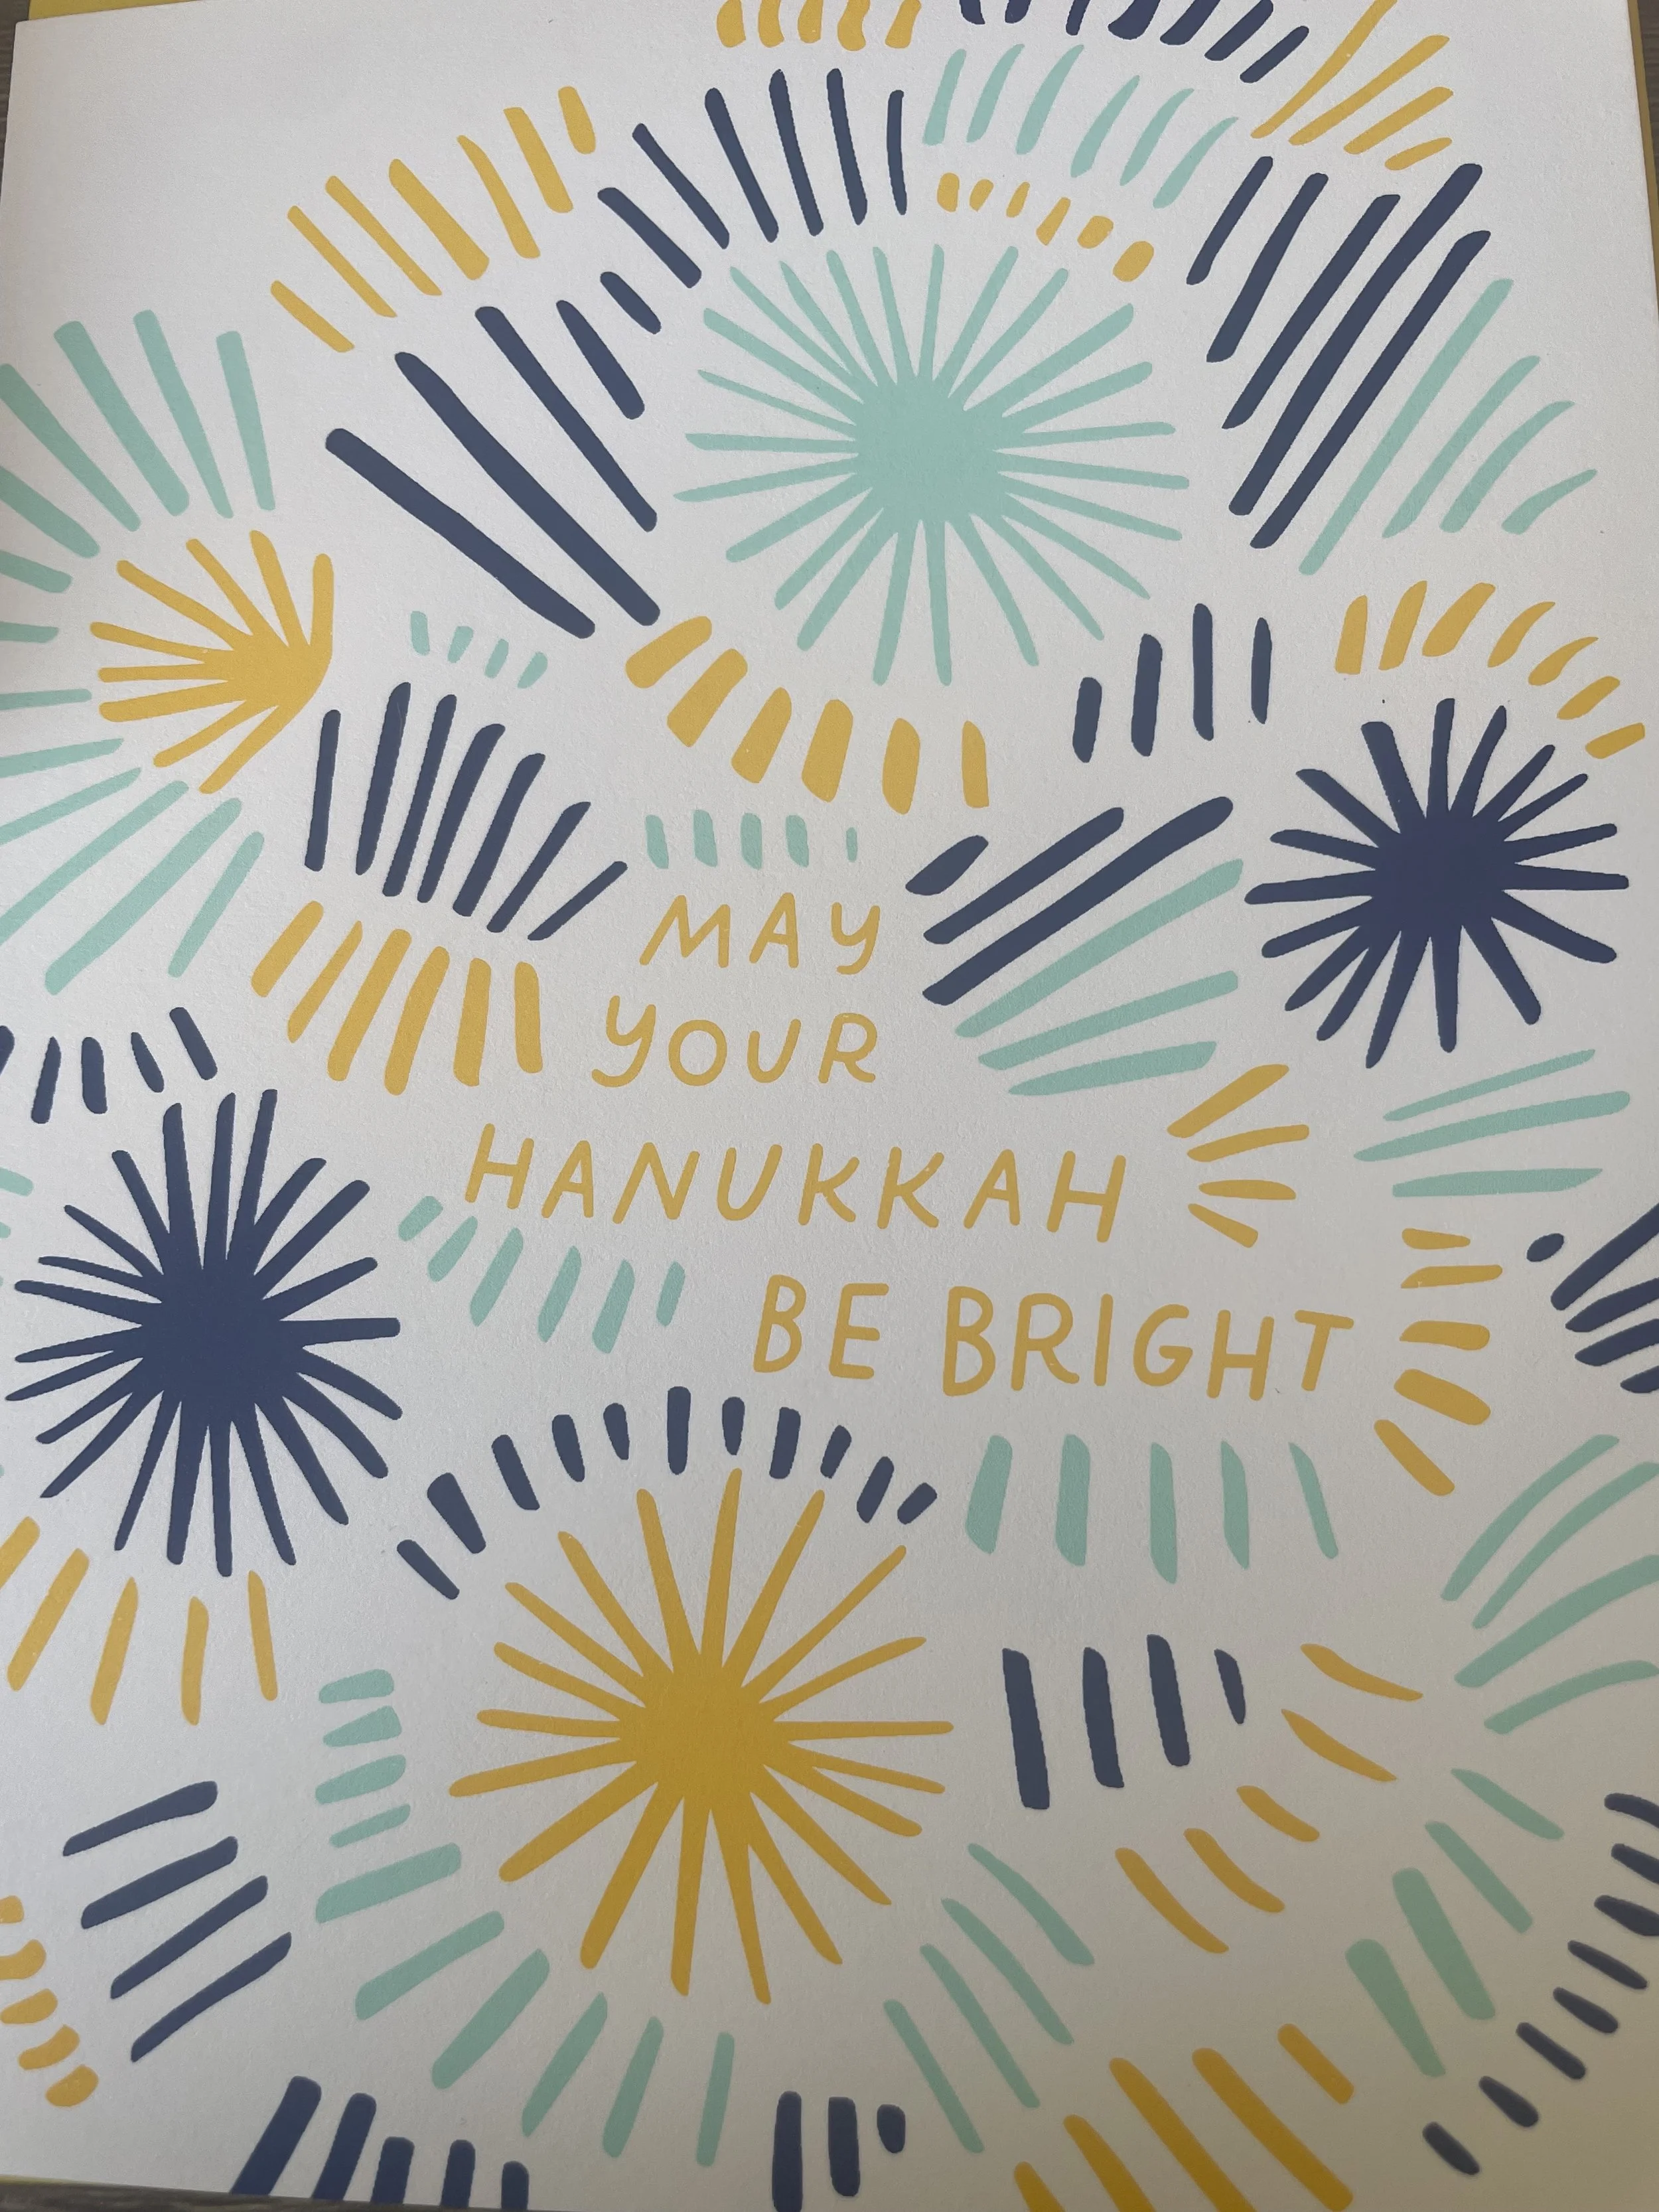 MAY
YOUR
HANUKKAH
BE BRIGHT